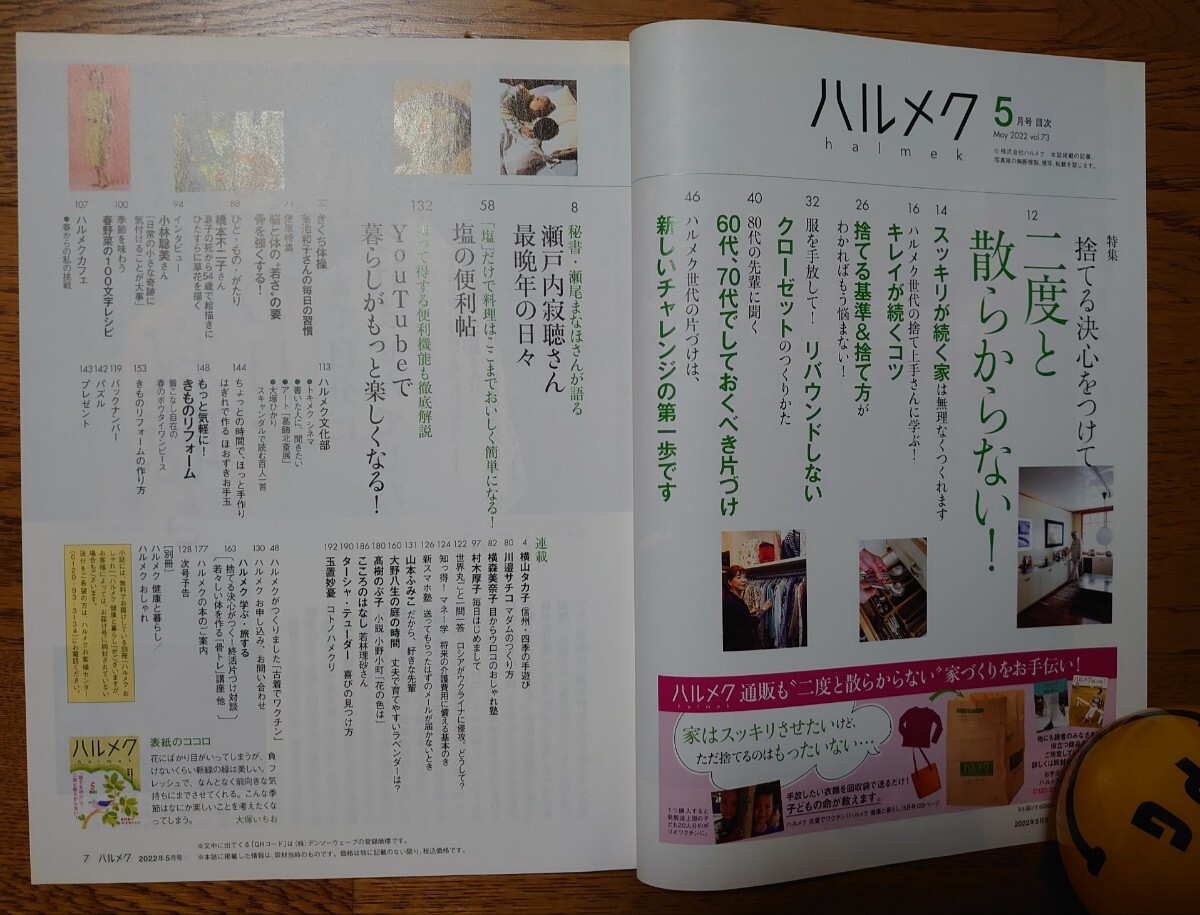 ハルメク
halmek
5月号 目次
May 2022 vol.73
©株式会社ハルメク 本誌掲載の記事、
写真等の無断複製、複写、転載を禁じます。
特集
捨てる決心をつけて
12
二度と
散らからない!
14
スッキリが続く家は無理なくつくれます
16
ハルメク世代の捨て上手さんに学ぶ!
キレイが続くコツ
26
捨てる基準&捨て方が
わかればもう悩まない!
32
服を手放して! リバウンドしない
クローゼットのつくりかた
40
80代の先輩に聞く
60代、70代でしておくべき片づけ
46
ハルメク世代の片づけは、
新しいチャレンジの第一歩です
ハルメク 通販も“二度と散らからない”家づくりをお手伝い!
halmek
家はスッキリさせたいけど、
ただ捨てるのはもったいない…
手放したい衣類を回収袋で送るだけ!
子どもの命が救えます。
ハルメク 古着でワクチン/「ハルメク 健康と暮らし」5月号129ページ
1つ購入すると
発展途上国の子
ども20人分のポ
リオワクチンに。
他にも読者のみなさま
役立つ商品
ご用意してい
詳しくは同封
2022年5月
8
秘書・瀬尾まなほさんが語る
瀬戸内寂聴さん
最晩年の日々
58
「塩」だけで料理はここまでおいしく簡単になる!
塩の便利帖
132
知って得する便利機能も徹底解説
YouTubeで
暮らしがもっと楽しくなる!
きくち体操
菊池和子さんの毎日の習慣
健康特集
脳と体の“若さ”の要
骨を強くする!
88
ひと・もの・がたり
橋本不二子さん
息子の死から54歳で絵描きに
ひたすらに草花を描く
94
インタビュー
小林聡美さん
「日常の小さな奇跡に
気付けることが大事」
100
季節を味わう
春野菜の100文字レシピ
107
ハルメクカフェ
●春からの私の挑戦
113
ハルメク文化部
●トキメクシネマ
●書いた人に、聞きたい
●アート「葛飾北斎展」
●大塚ひかり
スキャンダルで読む百人一首
144
ちょっとの時間で、ほっと手作り
はぎれで作る ほおずきお手玉
148
もっと気軽に!
きものリフォーム
着こなし自在の
春のボウタイワンピース
153
きものリフォームの作り方
119
バックナンバー
142
パズル
143
プレゼント
連載
4
横山タカ子 信州・四季の手遊び
80
川邉サチコ マダムのつくり方
82
横森美奈子 目からウロコのおしゃれ塾
97
村木厚子 毎日はじめまして
122
世界丸ごと一問一答 ロシアがウクライナに侵攻、どうして?
124
知っ得! マネー学 将来の介護費用に備える基本のき
126
新スマホ塾 送ってもらったはずのメールが届かないとき
131
山本ふみこ だから、好きな先輩
160
大野八生の庭の時間 丈夫で育てやすいラベンダーは?
180
髙樹のぶ子 小説 小野小町「花の色は」
186
こころのはなし 若林理砂さん
190
ターシャ・テューダー 喜びの見つけ方
192
玉置妙憂 コトノハメクリ
48
ハルメクがつくりました「古着でワクチン」
130
ハルメク お申し込み、お問い合わせ
ハルメク 学ぶ・旅する
163
[捨てる決心がつく!終活片づけ対談]
[若々しい体を作る「骨トレ」講座 他]
177
ハルメクの本のご案内
128
次号予告
[別冊]
ハルメク 健康と暮らし/
ハルメク おしゃれ
小誌には、無料でお届けしている別冊「ハルメク お
しゃれ」「ハルメク 健康と暮らし」がございますが、
お客様によっては、お届け号に同封されていない
場合もございます。
送付をご希望の方は、ハルメクお客様センター
(0120-93-3134)にお電話ください。
ハルメク
表紙のココロ
花にばかり目がいってしまうが、負
けないくらい新緑の緑は美しい。フ
レッシュで、なんとなく前向きな気
持ちにまでさせてくれる。こんな季
節はなにか楽しいことを考えたくな
ってしまう。 大塚いちお
※文中に出てくる「QRコード」は(株)デンソーウェーブの登録商標です。
※本誌に掲載した情報は、取材当時のものです。価格は特に記載のない限り、税込価格です。
7 ハルメク 2022年5月号